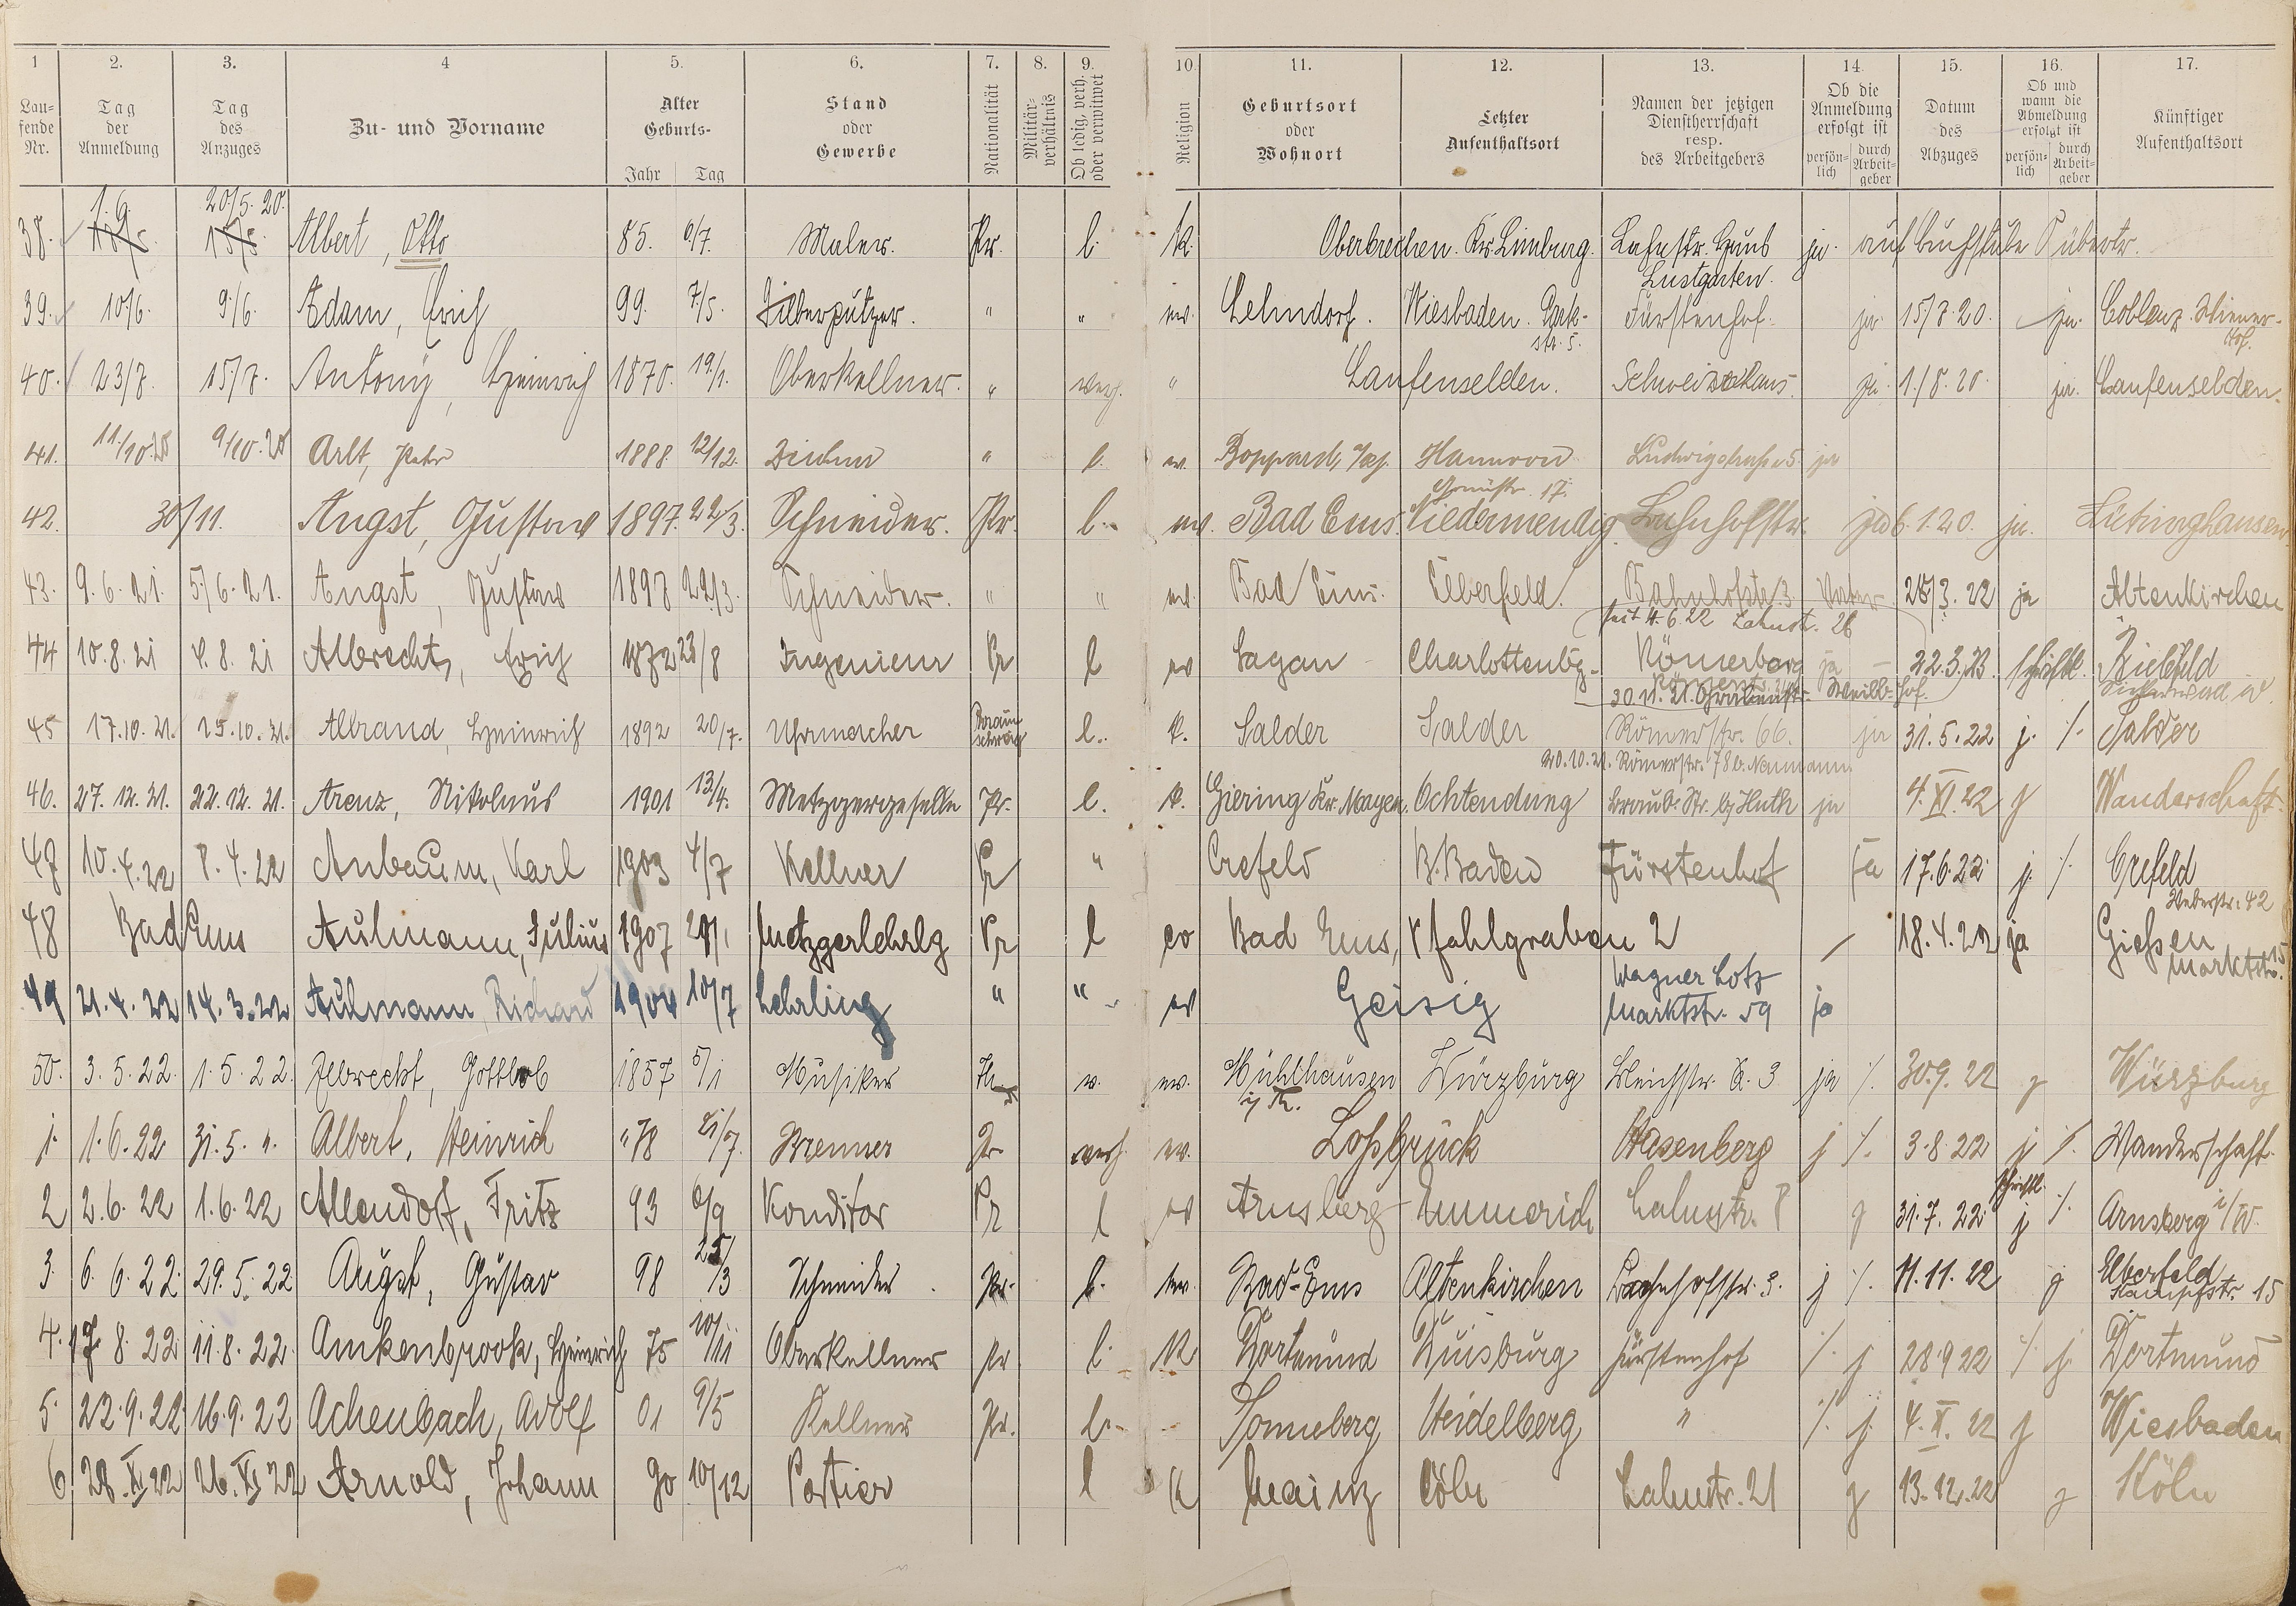 1 2. 3. 4 5. 6. 7. 8. 9. 10. 11. 12. 13. 14. 15. 16. 17.
Lau-
fende
Nr.
Tag
der
Anmeldung
Tag
des
Anzuges
Zu- und Vorname
Alter
Geburts-
Jahr Tag
Stand
oder
Gewerbe
Nationalität
Militär-
verhältnis
Ob ledig, verh.
oder verwitwet
Religion
Geburtsort
oder
Wohnort
Letzter
Aufenthaltsort
Namen der jetzigen
Dienstherrschaft
resp.
des Arbeitgebers
Ob die
Anmeldung
erfolgt ist
persön-
lich
durch
Arbeit-
geber
Datum
des
Abzuges
Ob und
wann die
Abmeldung
erfolgt ist
persön-
lich
durch
Arbeit-
geber
Künftiger
Aufenthaltsort
1.6. 20/5. 20.
38. 15/5. Albert, Otto 85. 6/7. Maler. Pr. l. K. Oberbrechen. Kr. Limburg. ja. auf Buchstabe übertr.
Lustgarten.
39. 10/6. 9/6. Adam, Erich 99. 7/5. Silberputzer. " " ev. Lehndorf. Wiesbaden. Park- Fürstenhof. ja. 15/7. 20. ja. Coblenz. Wiener-
str. 5. Hof.
40. 23/7. 15/7. Antony, Heinrich 1870. 19/1. Oberkellner. " verh. " Laufenselden. Schweizerhaus. ja. 1./8. 20. ja. Laufenselden.
41. 11/10. 20 9/10. 20 Arlt, 1888 12/12. " l. ev. Boppard, Hannover Ludwigstraße 5. ja
42. 30/11. Angst, Gustav 1897. 22/3. Schneider. Pr. l. ev. Bad Ems. Niedermendig. Bahnhofstr. 6. 1. 20. ja.
43. 9. 6. 21. 5/6. 21. Angst, Gustav 1897 22/3. Schneider. " " ev. Bad Ems. Elberfeld. Bahnhofstr. 3 28/3. 22 ja Altenkirchen
seit 4. 6. 22 Lahnstr. 26
44 10. 8. 21 8. 21 Albrecht, Erich 1872 23/8 Ingenieur Pr l ev Sagan Charlottenbg. Römerberg ja 22. 3. 23. schriftl. Bielefeld
30. 11. 21. Grabenstr. Weilb. Hof.
45 17. 10. 21. 15. 10. 21. Albrand, Heinrich 1892 20/7. Uhrmacher Braun-
schweig l. k. Salder Salder Römerstr. 66. ja 31. 5. 22 j. ·/. Salder
20. 10. 21. Römerstr. 78 b. Naumann
46. 27. 12. 21. 22. 12. 21. Arenz, Nikolaus 1901 13/4. Metzgergeselle Pr. l. k. Giering Kr. Mayen. Ochtendung Braub. Str. bj Huth ja 4. XI. 22 j Wanderschaft.
47 10. 4. 22 8. 4. 22 Anbaum, Karl 1903 4/7 Kellner Pr " Crefeld B. Baden Fürstenhof ja 17. 6. 22 j. ·/. Crefeld
Weberstr. 42
48 Bad Ems Aulmann, Julius 1907 Metzgerlehrlg Pr l ev Bad Ems, Pfahlgraben 2 18. 4. 22 ja Gießen
Marktstr. 15
49 21. 4. 22 14. 3. 22 Aulmann, Richard 1904 10/7 Lehrling " " ev Geisig Wagner Lotz
Marktstr. 59 ja
50. 3. 5. 22. 1. 5. 22. Albrecht, Gottlob 1857 5/1 Musiker Th w. ev. Mühlhausen Würzburg Bleichstr. 3 ja ·/. 30. 9. 22 j Würzburg
i/ Th.
1. 1. 6. 22 31. 5. ". Albert, Heinrich " 78 21/7. Brenner Pr verh. ev. Loßbrück Hasenberg j ·/. 3. 8. 22 j ·/. Wanderschaft.
2 2. 6. 22 1. 6. 22 Allendorf, Fritz 93 6/9 Konditor Pr l ev Arnsberg Emmerich Lahnstr. 8 j 31. 7. 22 schriftl. j ·/. Arnsberg i/W.
3. 6. 6. 22. 29. 5. 22 Augst, Gustav 98 25/3 Schneider Pr. l. ev. Bad-Ems Altenkirchen Bahnhofstr. 3. j ·/. 11. 11. 22 j Elberfeld
Kampfstr. 15
4. 17. 8. 22 11. 8. 22. Amkenbrook, Heinrich 75 10/11 Oberkellner Pr l. K Dortmund Duisburg Fürstenhof ·/. j 28 9 22 ·/. j. Dortmund
5. 22. 9. 22. 16. 9. 22 Achenbach, Adolf 01 9/5 Kellner Pr. l. - Sonneberg Heidelberg " ·/. j. 4. X. 22 j Wiesbaden
6. 28. XI 22 26. XI 22 Arnold, Johann 90 10/12 Portier l K Mainz Cöln Lahnstr. 21 j 13. 12. 22 j Köln